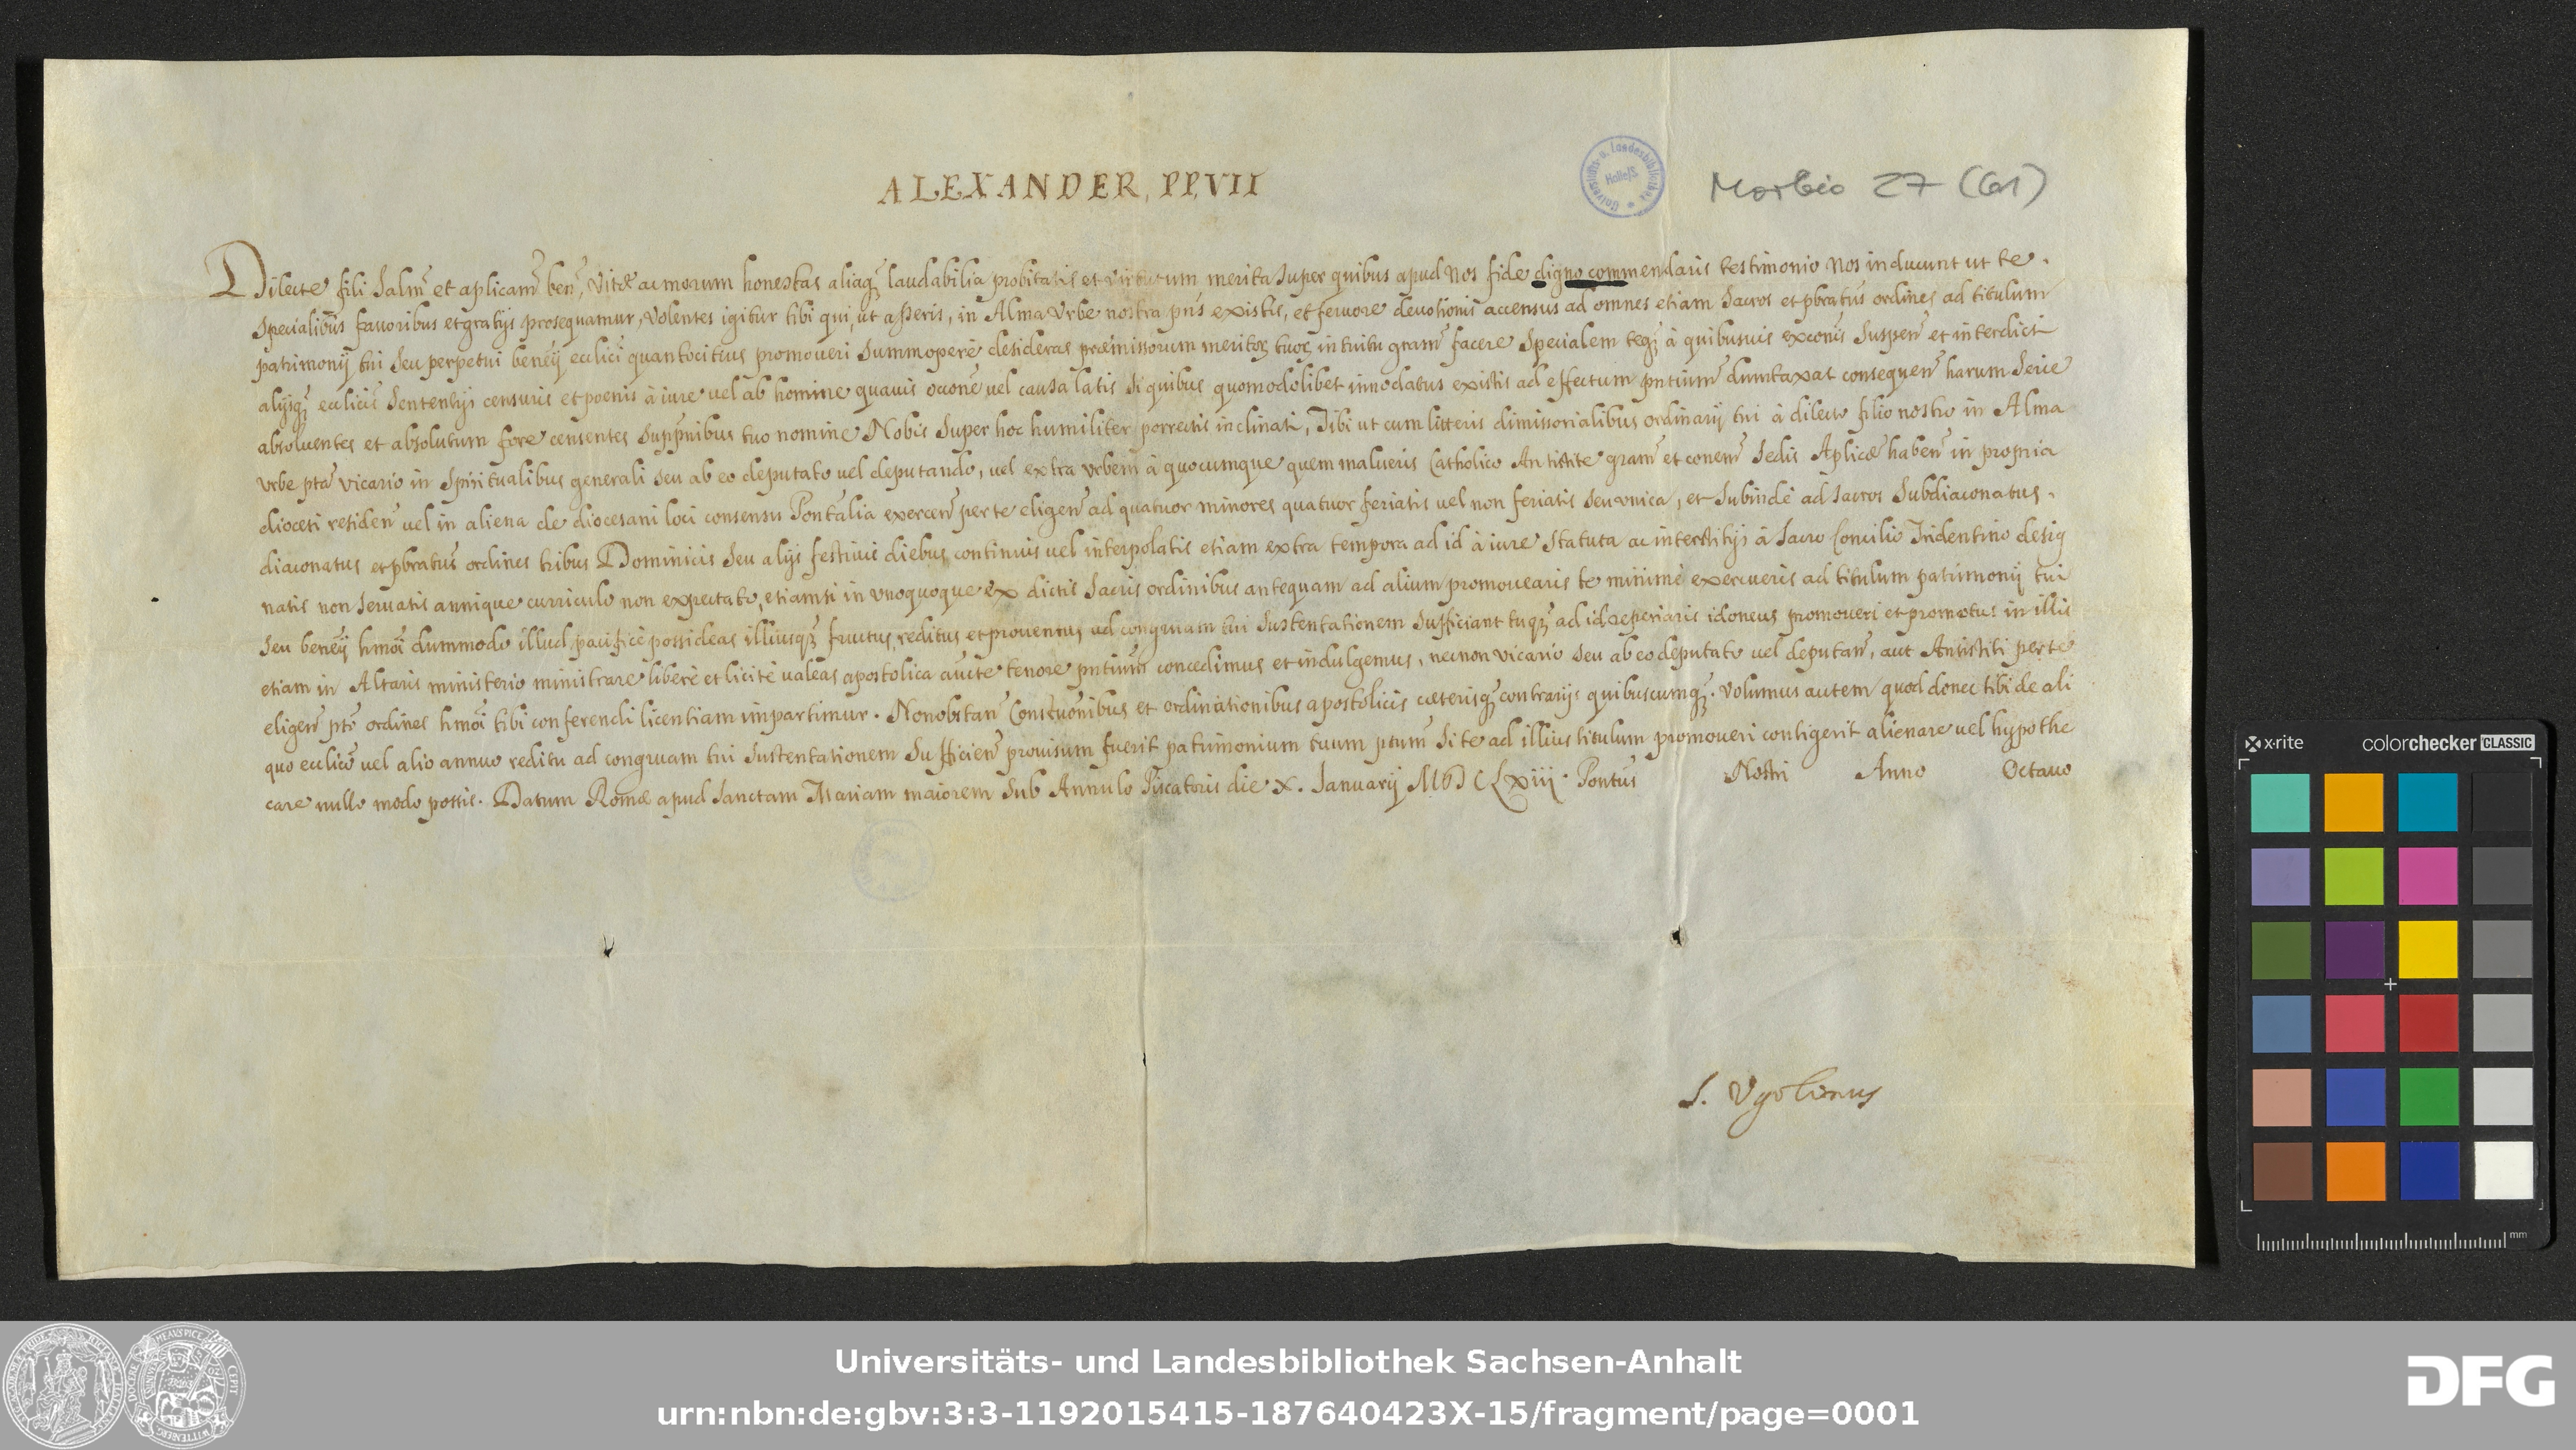 ALEXANDER, PP, VII
Universitäts- u. Landesbibliothek Halle/S.
Morbio 27 (61)
Dilecte fili salm̃ et aplicam̃ ben̄, Vitæ ac morum honestas aliaq₃ laudabilia probitatis et virtutum merita super quibus apud Nos fide digno commendaris testimonio Nos inducunt ut te
specialibus favoribus et gratijs prosequamur, Volentes igitur tibi qui, ut asseris, in Alma Urbe nostra pñs existis, et fervore devotionis accensus ad omnes etiam sacros et pbratus̃ ordines ad titulum
patrimonij tui seu perpetui benẽij ecclici quantocitius promoveri summoperè desideras præmissorum meritoꝝ tuoꝝ intuitu gram̃ facere specialem teq₃ à quibusvis excõnis suspen̄ et interdicti
alijsq₃ ecclicis̃ sententijs censuris et poenis à iure vel ab homine quavis occõne vel causa latis si quibus quomodolibet innodatus existis ad effectum pntium̃ dumtaxat consequen̄ harum serie
absolventes et absolutum fore censentes supp̃nibus tuo nomine Nobis super hoc humiliter porrectis inclinati, Tibi ut cum litteris dimissorialibus ordinarij tui à dilecto filio nostro in Alma
Urbe ptã vicario in spiritualibus generali seu ab eo deputato vel deputando, vel extra Urbem à quocumque quem malueris Catholico Antistite gram̃ et cõnem̃ sedis Aplicæ haben̄ in propria
diocesi residen̄ vel in aliena de diocesani loci consensu Pontãlia exercen̄ per te eligen̄ ad quatuor minores quatuor feriatis vel non feriatis seu unica, et subindè ad sacros Subdiaconatus.
diaconatus et pbratus̃ ordines tribus Dominicis seu alijs festivis diebus continuis vel interpolatis etiam extra tempora ad id à iure statuta ac interstitijs à sacro Concilio Tridentino desig
natis non servatis annique curriculo non expectato, etiamsi in unoquoque ex dictis sacris ordinibus antequam ad alium promovearis te minimè exercueris ad titulum patrimonij tui
seu benẽij hmõi dummodo illud pacificè possideas illiusq₃ fructus, reditus et proventus ad congruam tui sustentationem sufficiant tuq₃ ad id reperiaris idoneus promoveri et promotus in illis
etiam in Altaris ministerio ministrare liberè et licitè valeas apostolica aucte tenore pntium̃ concedimus et indulgemus, necnon vicario seu ab eo deputato vel deputan̄, aut Antistiti per te
eligen̄ ptõ ordines hmõi tibi conferendi licentiam impartimur. Nonobstan̄ Constitutionibus et ordinationibus apostolicis cæterisq₃ contrarijs quibuscumq₃. Volumus autem quod donec tibi de ali
quo ecclico vel alio annuo reditu ad congruam tui sustentationem sufficien̄ provisum fuerit patrimonium tuum ptum̃ si te ad illius titulum promoveri contigerit alienare vel hypothe
care nullo modo possis. Datum Romæ apud Sanctam Mariam maiorem sub Annulo Piscatoris die X. Januarij MDCLxiij. Pontus̃ Nostri Anno Octavo
S. Ugolinus
x·rite colorchecker CLASSIC
mm
Universitäts- und Landesbibliothek Sachsen-Anhalt
urn:nbn:de:gbv:3:3-1192015415-187640423X-15/fragment/page=0001
DFG